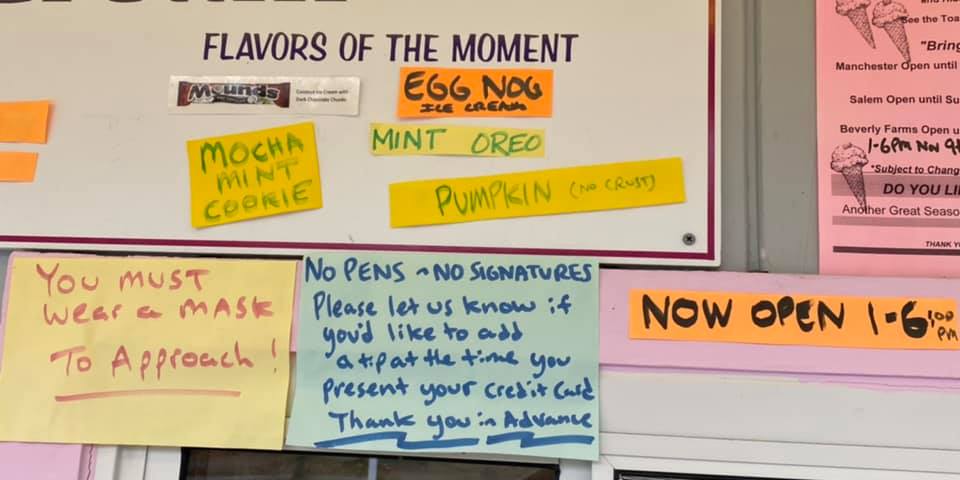 FLAVORS OF THE MOMENT
Mounds
Coconut Ice Cream with
Dark Chocolate Chunks
EGG NOG
ICE CREAM
MINT OREO
MOCHA
MINT
COOKIE
PUMPKIN (NO CRUST)
YOU MUST
wear a MASK
To Approach!
NO PENS ~ NO SIGNATURES
Please let us know if
you'd like to add
a tip at the time you
present your credit card
Thank you in Advance
NOW OPEN 1-6:00
PM
See the Toa
"Bring
Manchester Open until
Salem Open until Su
Beverly Farms Open u
1-6PM
*Subject to Chang
DO YOU LI
Another Great Seaso
THANK Y